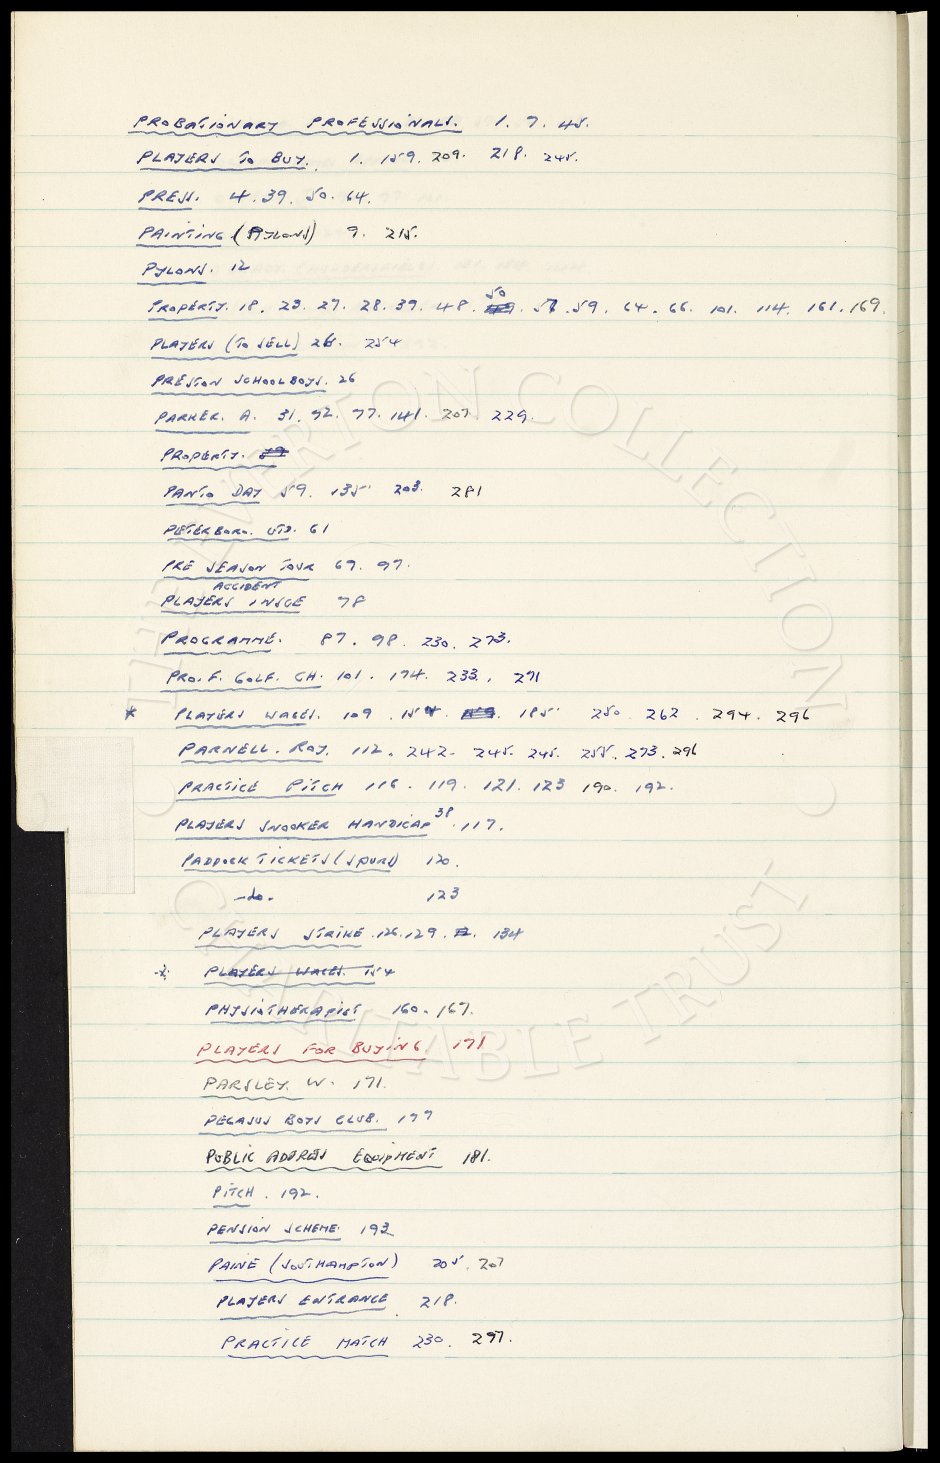 PROBATIONARY PROFESSIONALS. 1. 7. 45.
PLAYERS TO BUY. 1. 159. 209. 218. 245.
PRESS. 4. 39. 50. 64.
PAINTING (PYLONS) 9. 215.
PYLONS. 12
50
PROPERTY. 18. 23. 27. 28. 39. 48. 58. 59. 64. 66. 101. 114. 161. 169.
PLAYERS (TO SELL) 26. 254
PRESTON SCHOOLBOYS. 26
PARKER. A. 31. 72. 77. 141. 207 229.
PROPERTY.
PANTO DAY 59. 135 203. 281
PETERBORO. UTD. 61
PRE SEASON TOUR 69. 97.
ACCIDENT
PLAYERS INSCE 78
PROGRAMME. 87. 98. 230. 273.
PRO.F. GOLF. CH. 101. 174. 233. 271
* PLAYERS WAGES. 109. 154. 185 250. 262. 294. 296
PARNELL. ROY. 112. 242. 245. 245. 255. 273. 296
PRACTICE PITCH 116. 119. 121. 123 190. 192.
PLAYERS SNOOKER HANDICAP 38. 117.
PADDOCK TICKETS (SPURS) 120.
-do- 123
PLAYERS STRIKE. 126. 129. 134
PLAYERS WAGES. 154
PHYSIOTHERAPIST 160. 167.
PLAYERS FOR BUYING 171
PARSLEY. W. 171.
PEGASUS BOYS CLUB. 177
PUBLIC ADDRESS EQUIPMENT 181.
PITCH. 192.
PENSION SCHEME. 193
PAINE (SOUTHAMPTON) 205. 207
PLAYERS ENTRANCE 218.
PRACTICE MATCH 230. 297.
THE EVERTON COLLECTION
CHARITABLE TRUST